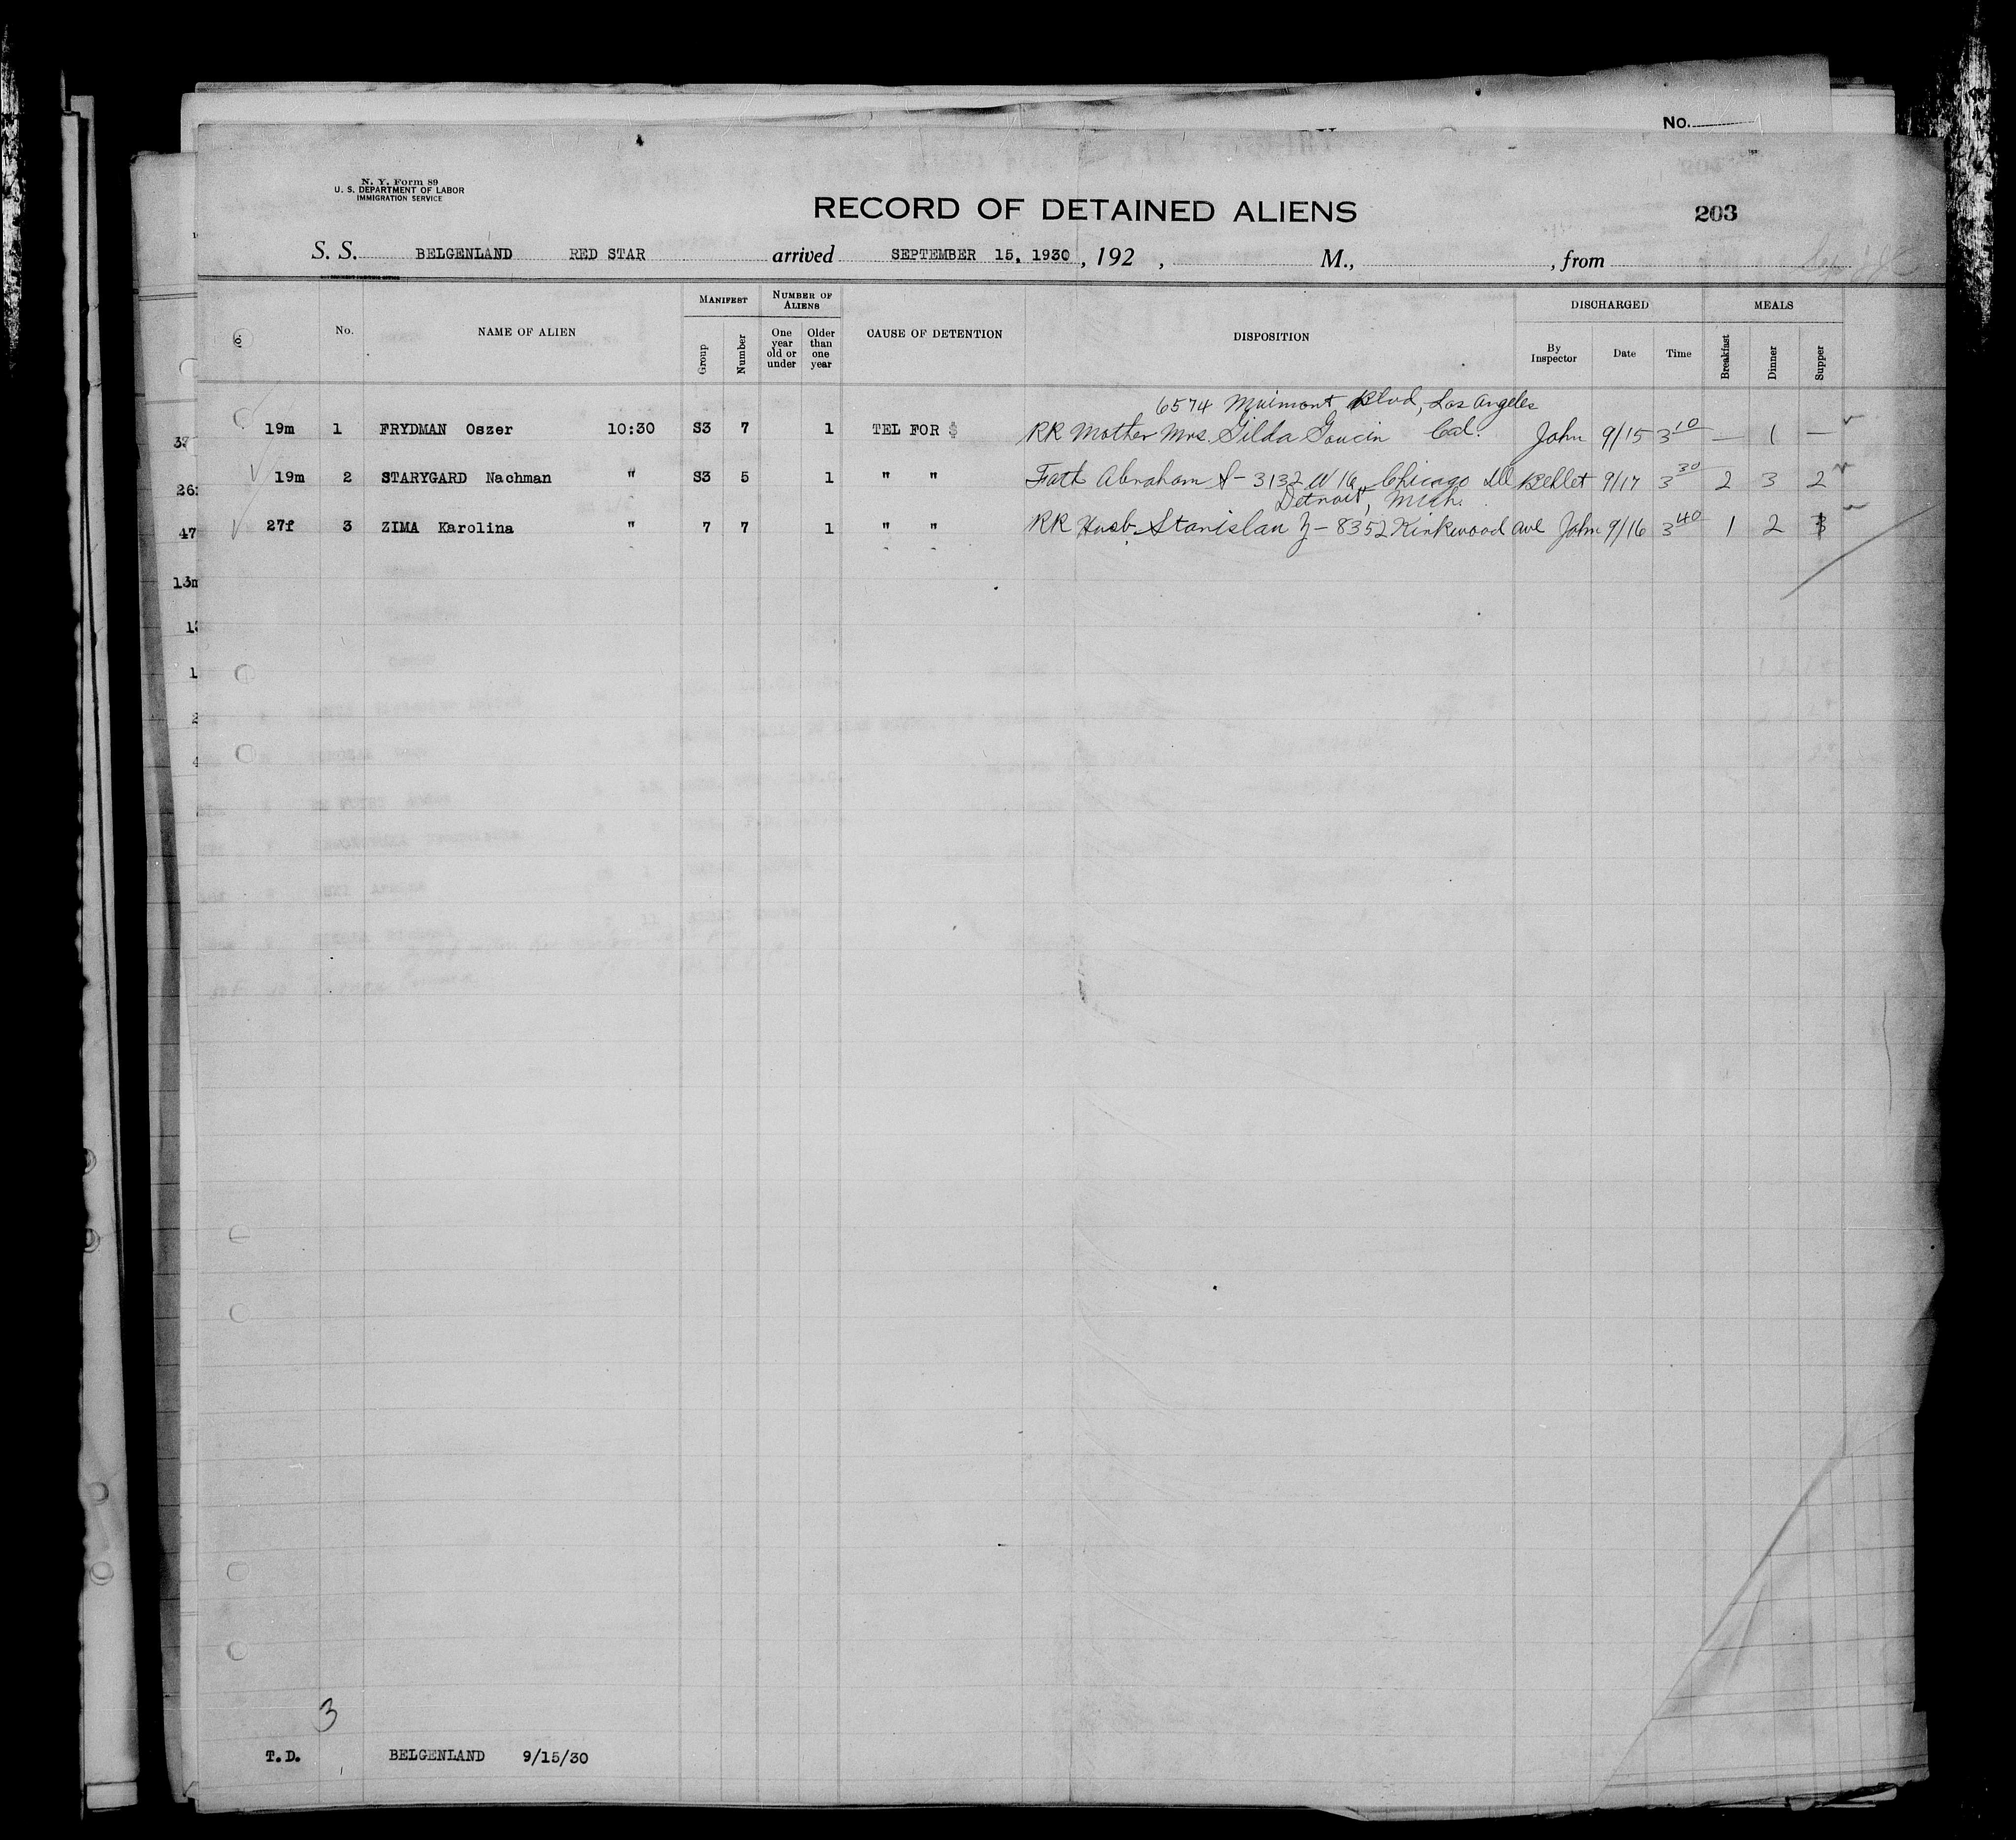 No.
N. Y. Form 89
U. S. DEPARTMENT OF LABOR
IMMIGRATION SERVICE
RECORD OF DETAINED ALIENS
203
S. S. BELGENLAND RED STAR arrived SEPTEMBER 15, 1930, 192 , M., , from
No. NAME OF ALIEN MANIFEST Group Number NUMBER OF ALIENS One year old or under Older than one year CAUSE OF DETENTION DISPOSITION DISCHARGED By Inspector Date Time MEALS Breakfast Dinner Supper
6574 Blvd, Los Angeles
19m 1 FRYDMAN Oszer 10:30 S3 7 1 TEL FOR $ RR Mother Mrs. Gilda Cal. John 9/15 3 10 — 1 —
19m 2 STARYGARD Nachman " S3 5 1 " " Fath Abraham S - 3132 W 16, Chicago Ill 9/17 3 30 2 3 2
Detroit, Mich.
27f 3 ZIMA Karolina " 7 7 1 " " RR Husb. Stanislau Z - 8352 Kirkwood Ave John 9/16 3 40 1 2
37
26
47
13m
3
T.D. BELGENLAND 9/15/30